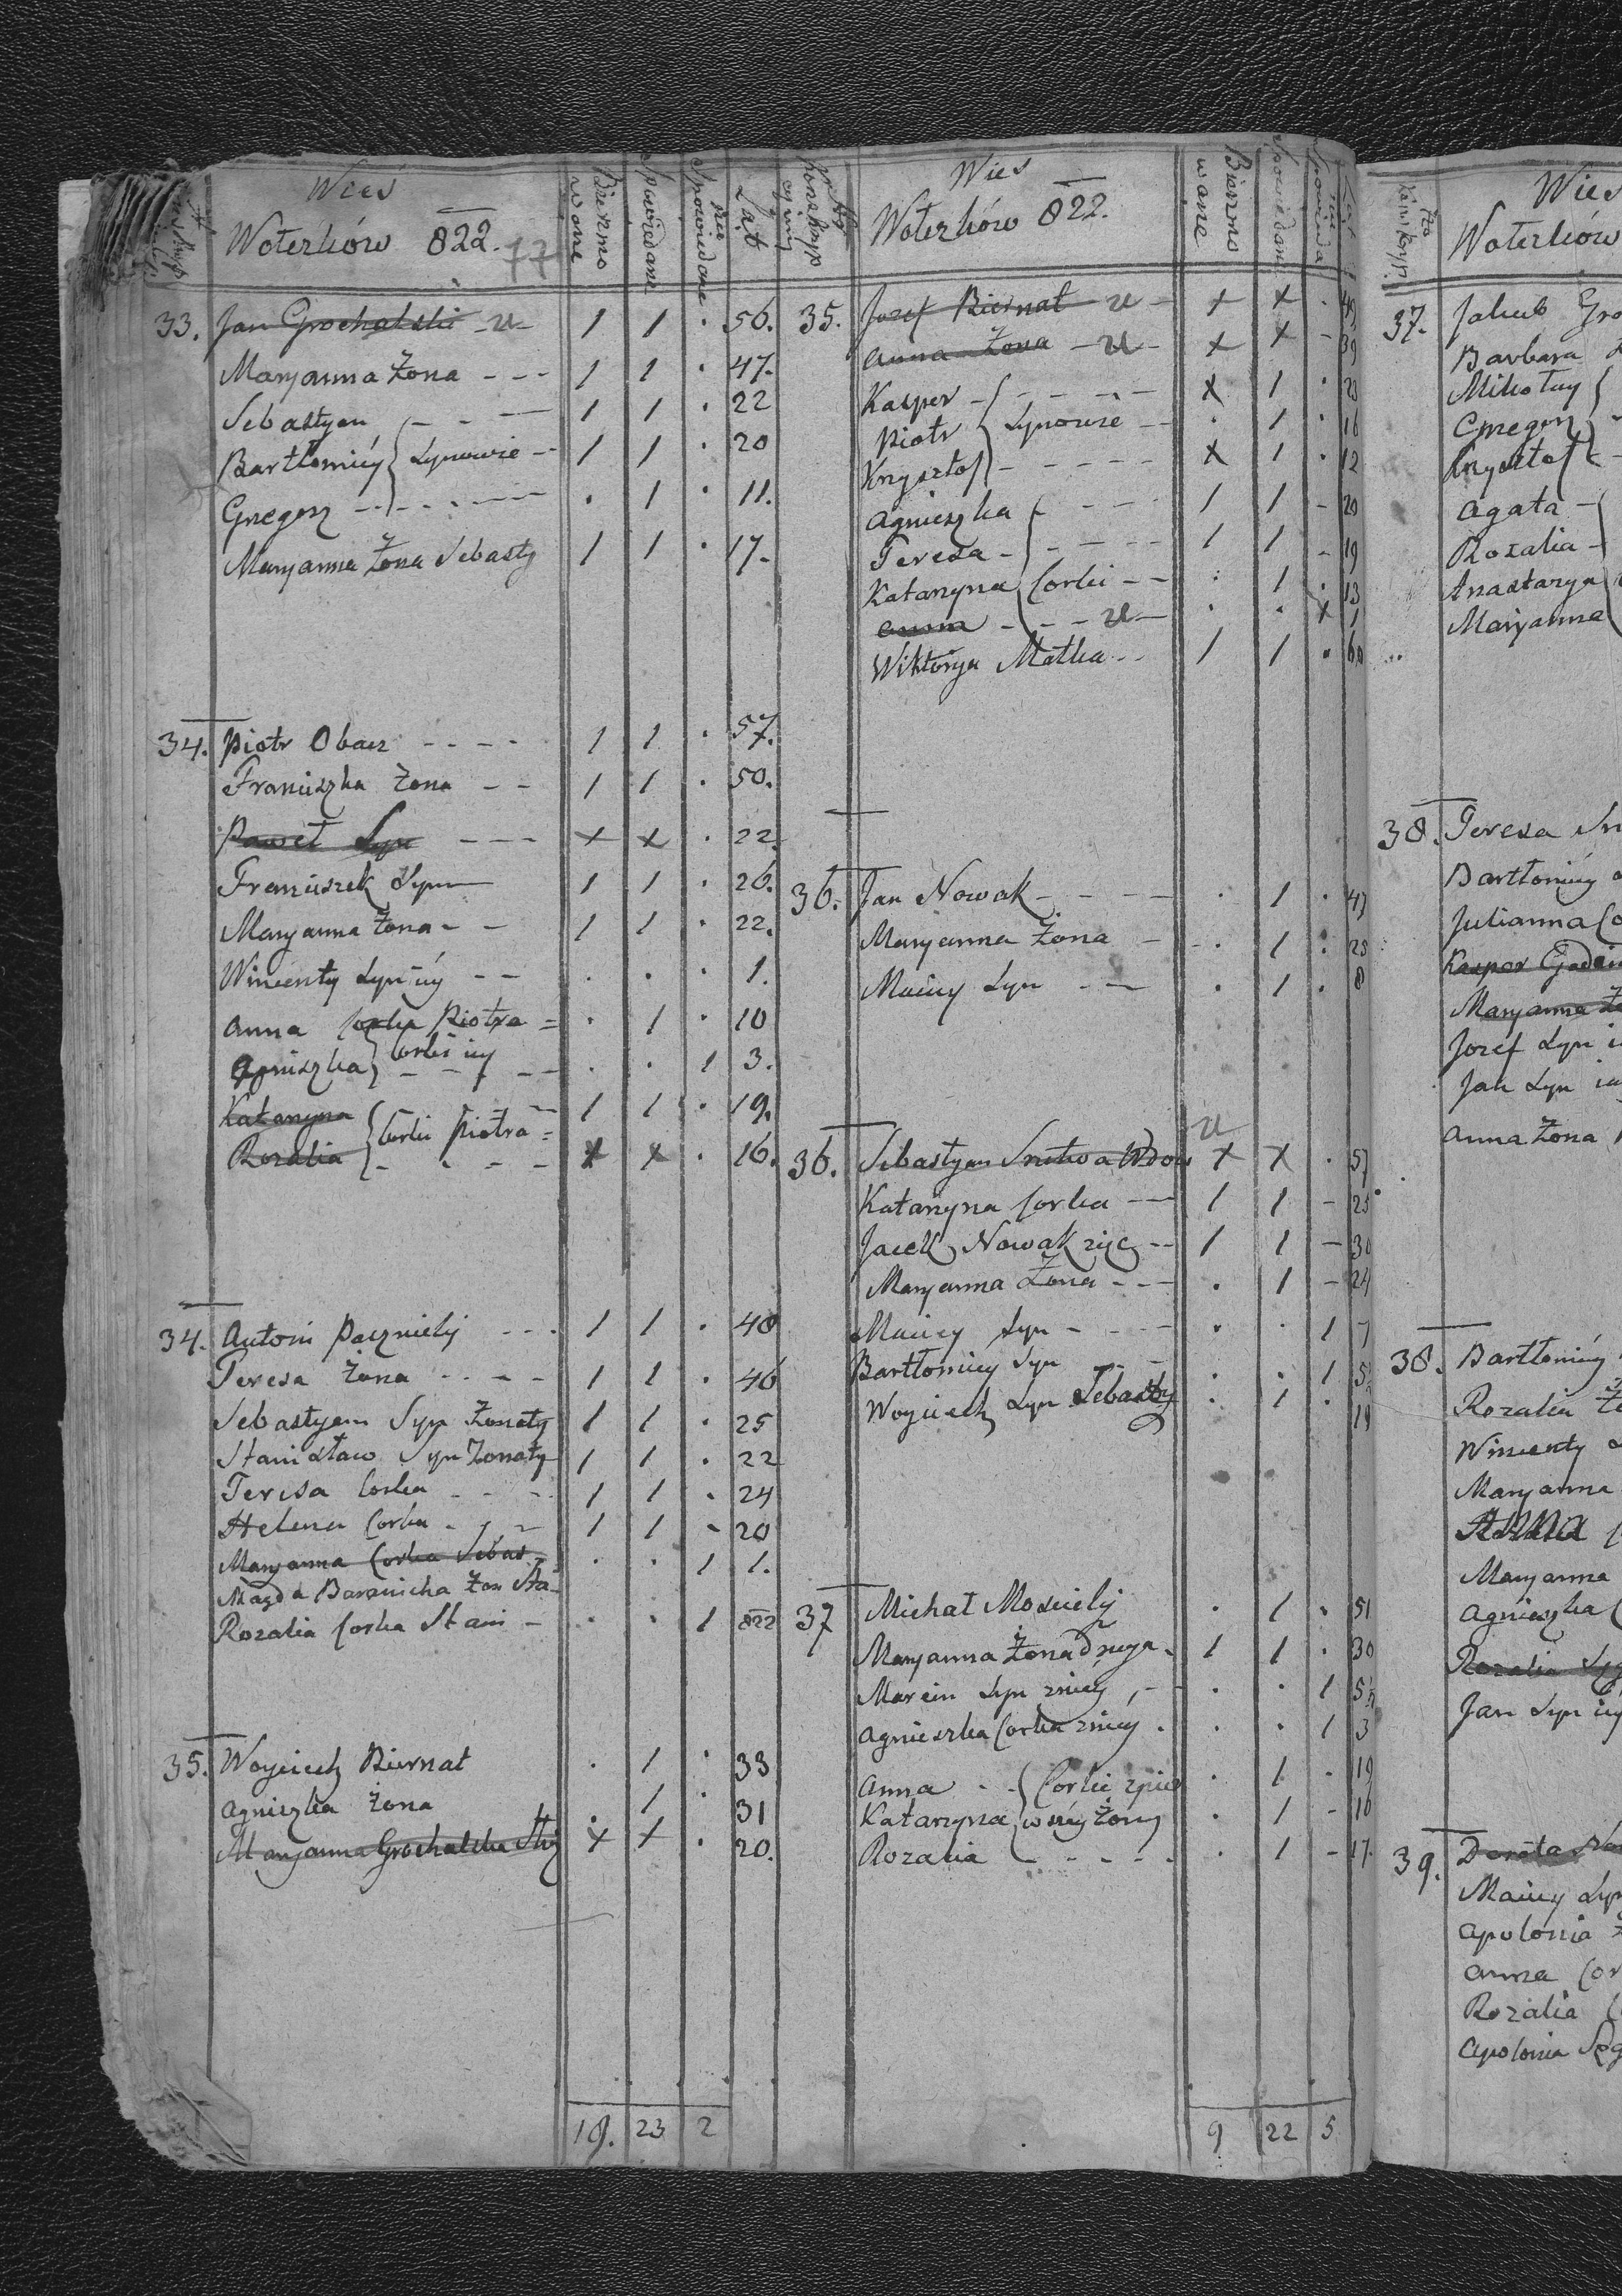 Wies
Woterków 822. 77
Bierzmowane
Spowiedane
nie Spowiedane
Lat
33. Jan Grochalski - u - 1 1 . 56.
Maryanna Żona - - - 1 1 . 47.
Sebastyan - - - 1 1 . 22
Bartłomiéy Synowie - - 1 1 . 20
Grzegorz - - - - . 1 . 11.
Maryanna Żona Sebasty 1 1 . 17.
34. Piotr Obacz - - - - 1 1 . 57.
Franciszka Żona - - 1 1 . 50.
Paweł Syn - - - x x . 22.
Franciszek Syn 1 1 . 26.
Maryanna Żona - - 1 1 . 22.
Wincenty Syn iéy - - . . . 1.
Anna Corka Piotra = . 1 . 10
Agniszka Corki iey - - - . . 1 3.
Katarzyna - - 1 1 . 19.
Rozalia Corki Piotra = x x . 16.
34. Antoni - - . 1 1 . 48
Teresa Żona - - - - 1 1 . 46
Sebastyan Syn Żonaty 1 1 . 25
Stanisław Syn Żonaty 1 1 . 22
Teresa Corka - - - 1 1 . 24
Helena Corka - - - 1 1 - 20
Maryanna Corka Sebas . . 1 1.
Magda Baranicha Żon Sta
Rozalia Corka Stani - . . 1 822
35. Woyciech Biernat . 1 . 33
Agniszka Żona . 1 . 31
Maryanna Grochalska x x . 20.
19. 23 2
Wies
Woterków 822.
Bierzmowane
Spowiedane
35. Jozef Biernat u - x x . 49
Anna Żona - u - x x - 39
Kasper - - - - - x 1 . 20
Piotr Synowie - - . 1 . 16
Krzysztof - - - - - x 1 . 12
Agnieszka - - - 1 1 - 20
Teresa - - - - - 1 1 - 19
Katarzyna Corki - - . 1 . 13
Anna - - - u - . . x 1
Wiktorya Matka - - 1 1 . 60
36. Jan Nowak - - - - . 1 . 49
Maryanna Żona - . 1 . 25
Maciey Syn - - . 1 . 8
u
36. Sebastyan Wdow x x . 57
Katarzyna Corka - - 1 1 - 25
Jacek Nowak zięć - - 1 1 - 30
Maryanna Żona - - - . 1 - 24
Maciey Syn - - - - . . 1 7
Bartłomiey Syn - - . . 1 5
Woyciech Syn Sebasty . 1 . 19
37 Michał Mościcky . 1 . 51
Maryanna Żona druga . 1 1 . 30
Marcin Syn zniey - - . . 1 5
Agnieszka Corka zniey . . . 1 3
Anna - - Corki zpier . 1 . 19
Katarzyna wszey Żony . 1 - 18
Rozalia - - - - . . 1 - 17.
9 22 5
Wies
Woterków
37. Jakub Gro
Barbara
Mikołay
Grzegorz
Krzysztof
Agata -
Rozalia -
Anastazya
Maryanna
38. Teresa
Bartłomiéy
Julianna Co
Kasper
Maryanna Żo
Jozef Syn
Jan Syn
Anna Żona
38. Bartłomiéy
Rozalia
Wincenty
Maryanna
Anna
Maryanna
Agnieszka
Rozalia
Jan Syn
39. Dorota
Maciey Syn
Apolonia
Anna Cor
Rozalia
Apolonia